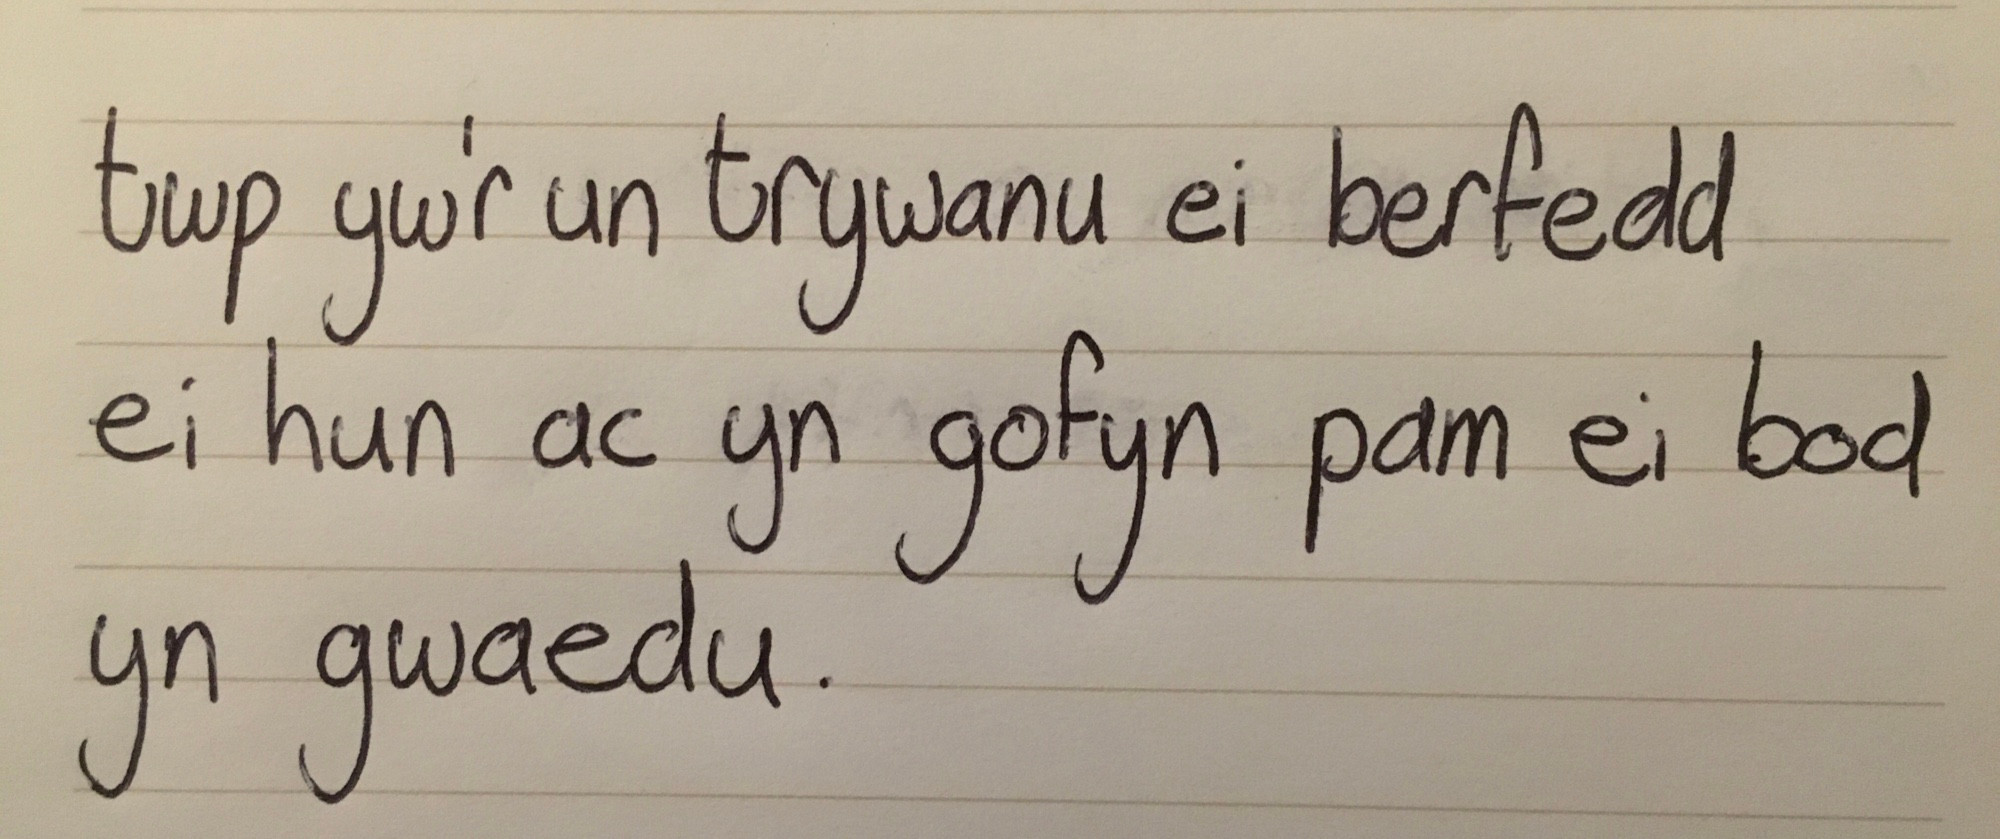 twp yw'r un trywanu ei berfedd
ei hun ac yn gofyn pam ei bod
yn gwaedu.